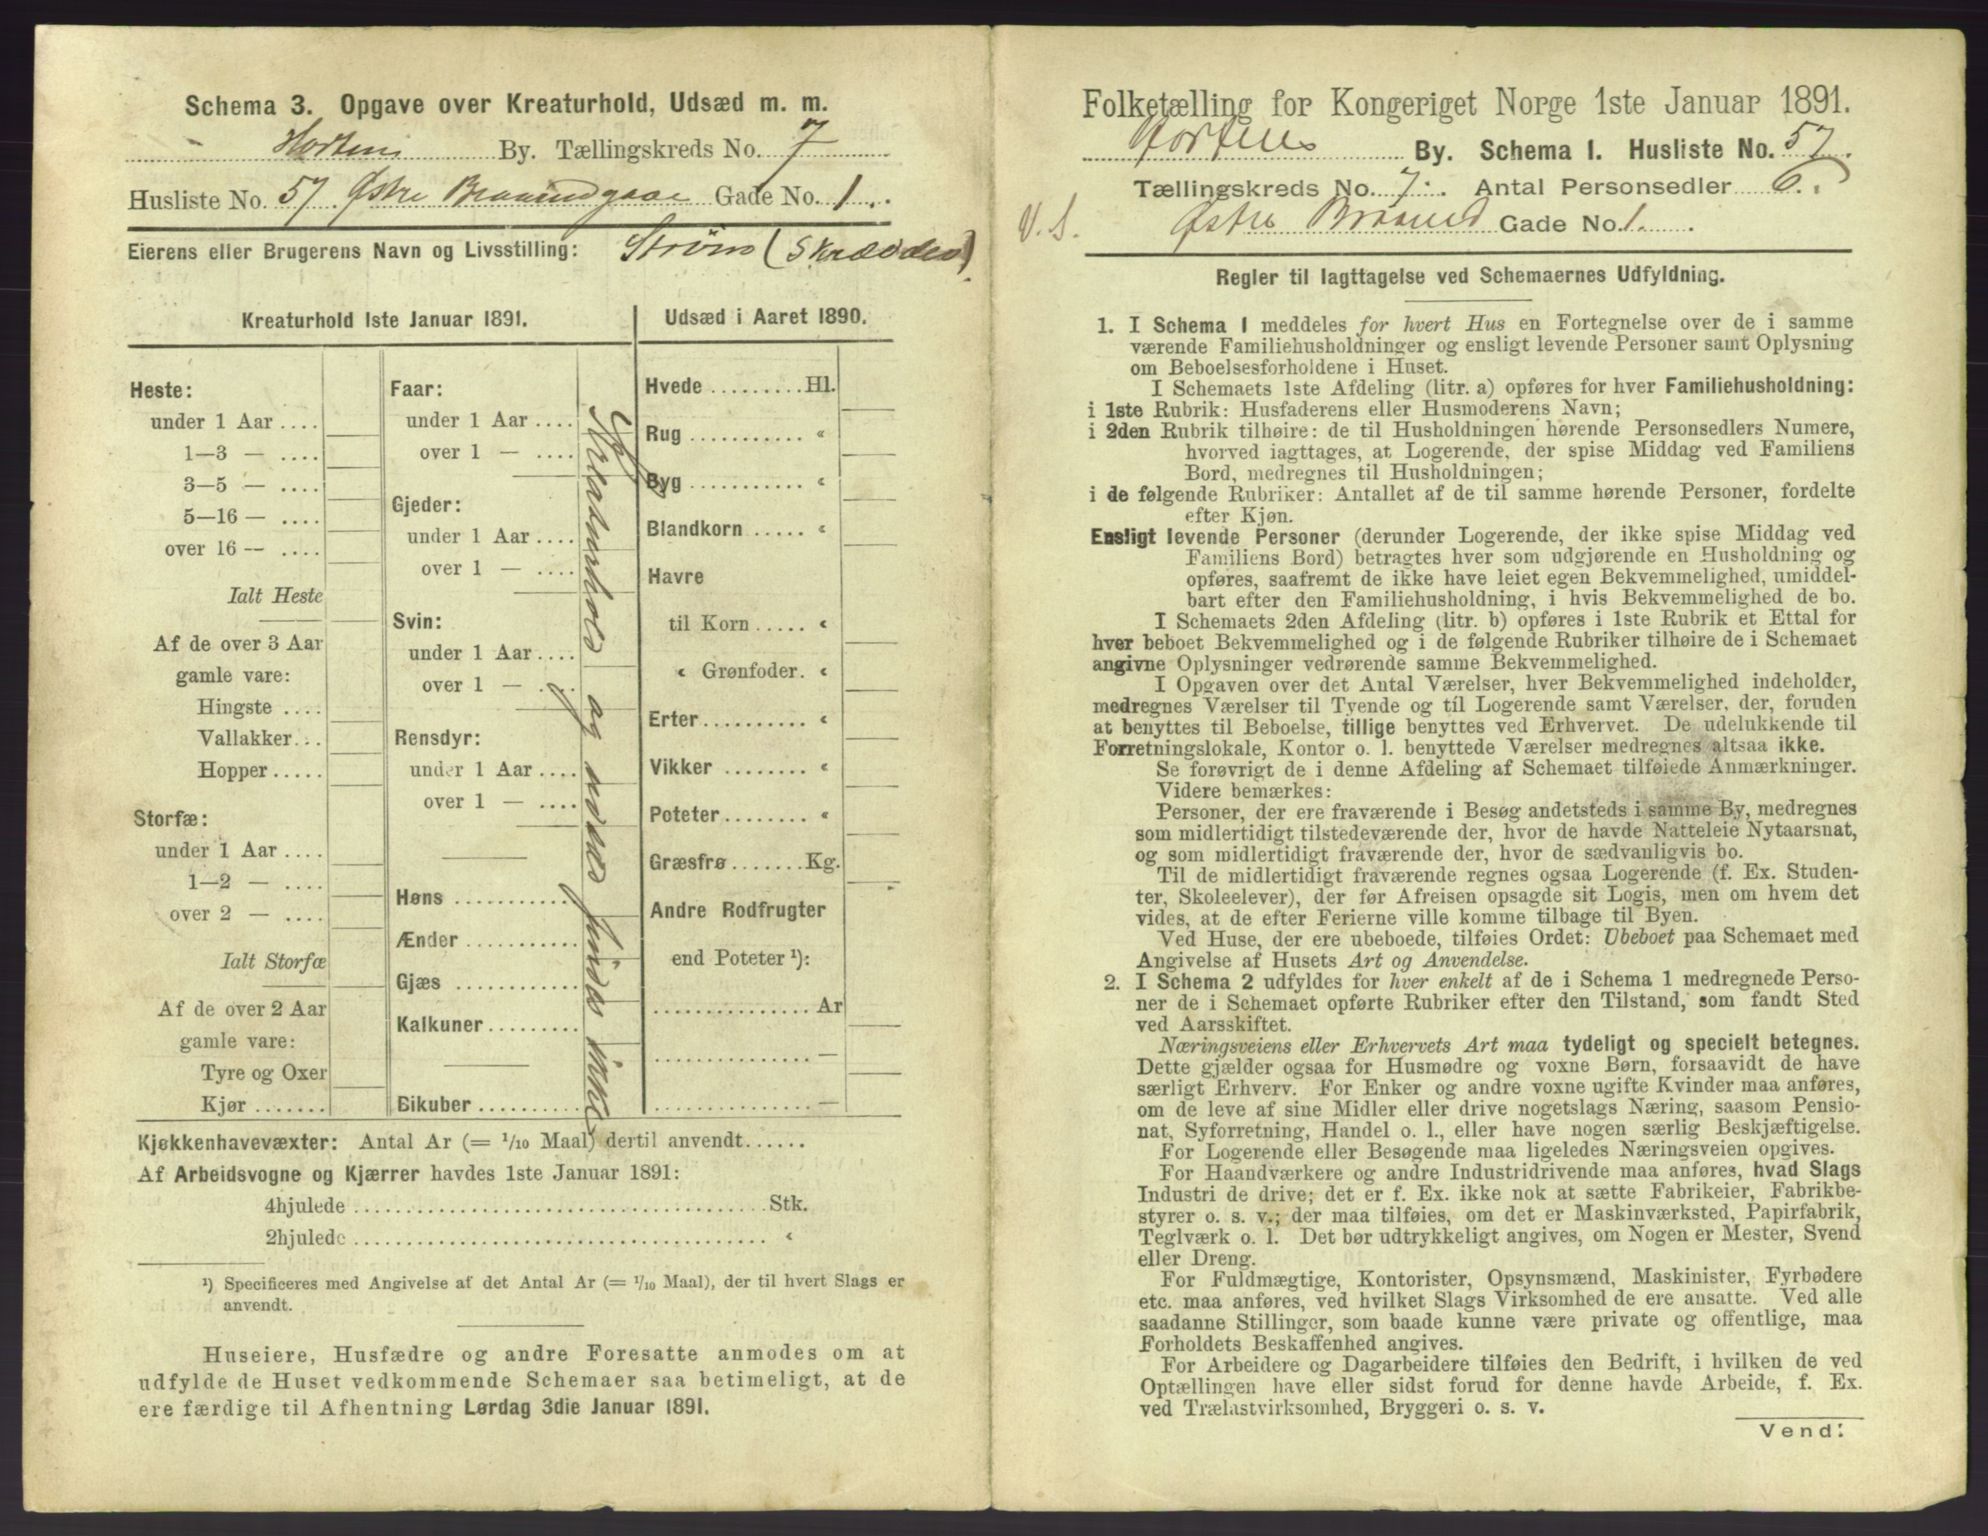 Schema 3. Opgave over Kreaturhold, Udsæd m. m.
Horten By. Tællingskreds No. 7
Husliste No. 57 Østre Gade No. 1.
Eierens eller Brugerens Navn og Livsstilling: Strøm (Skrædder)
Kreaturhold 1ste Januar 1891.
Heste:
under 1 Aar ....
1—3 — ....
3—5 — ....
5—16 — ....
over 16 — ....
Ialt Heste
Af de over 3 Aar
gamle vare:
Hingste ....
Vallakker...
Hopper.....
Storfæ:
under 1 Aar ....
1—2 — ....
over 2 — ....
Ialt Storfæ
Af de over 2 Aar
gamle vare:
Tyre og Oxer
Kjør .......
Faar:
under 1 Aar ....
over 1 — ....
Gjeder:
under 1 Aar ....
over 1 — ....
Svin:
under 1 Aar ....
over 1 — ....
Rensdyr:
under 1 Aar ....
over 1 — ....
Høns ..........
Ænder ..........
Gjæs ..........
Kalkuner.........
Bikuber ..........
Kreaturhold og udsæd findes ikke
Udsæd i Aaret 1890.
Hvede .........Hl.
Rug ........... «
Byg ........... «
Blandkorn ..... «
Havre
til Korn ..... «
« Grønfoder. «
Erter.......... «
Vikker ........ «
Poteter........ «
Græsfrø.......Kg.
Andre Rodfrugter
end Poteter ¹):
............... Ar
............... —
............... —
Kjøkkenhavevæxter: Antal Ar (= 1/10 Maal) dertil anvendt......
Af Arbeidsvogne og Kjærrer havdes 1ste Januar 1891:
4hjulede ........................................Stk.
2hjulede ........................................ «
¹) Specificeres med Angivelse af det Antal Ar (= 1/10 Maal), der til hvert Slags er
anvendt.
Huseiere, Husfædre og andre Foresatte anmodes om at
udfylde de Huset vedkommende Schemaer saa betimeligt, at de
ere færdige til Afhentning Lørdag 3die Januar 1891.
Folketælling for Kongeriget Norge 1ste Januar 1891.
Horten By. Schema 1. Husliste No. 57.
Tællingskreds No. 7. Antal Personsedler 6.
V. S. Østre Gade No. 1.
Regler til Iagttagelse ved Schemaernes Udfyldning.
1. I Schema 1 meddeles for hvert Hus en Fortegnelse over de i samme
værende Familiehusholdninger og ensligt levende Personer samt Oplysning
om Beboelsesforholdene i Huset.
I Schemaets 1ste Afdeling (litr. a) opføres for hver Familiehusholdning:
i 1ste Rubrik: Husfaderens eller Husmoderens Navn;
i 2den Rubrik tilhøire: de til Husholdningen hørende Personsedlers Numere,
hvorved iagttages, at Logerende, der spise Middag ved Familiens
Bord, medregnes til Husholdningen;
i de følgende Rubriker: Antallet af de til samme hørende Personer, fordelte
efter Kjøn.
Ensligt levende Personer (derunder Logerende, der ikke spise Middag ved
Familiens Bord) betragtes hver som udgjørende en Husholdning og
opføres, saafremt de ikke have leiet egen Bekvemmelighed, umiddel-
bart efter den Familiehusholdning, i hvis Bekvemmelighed de bo.
I Schemaets 2den Afdeling (litr. b) opføres i 1ste Rubrik et Ettal for
hver beboet Bekvemmelighed og i de følgende Rubriker tilhøire de i Schemaet
angivne Oplysninger vedrørende samme Bekvemmelighed.
I Opgaven over det Antal Værelser, hver Bekvemmelighed indeholder,
medregnes Værelser til Tyende og til Logerende samt Værelser, der, foruden
at benyttes til Beboelse, tillige benyttes ved Erhvervet. De udelukkende til
Forretningslokale, Kontor o. l. benyttede Værelser medregnes altsaa ikke.
Se forøvrigt de i denne Afdeling af Schemaet tilføiede Anmærkninger.
Videre bemærkes:
Personer, der ere fraværende i Besøg andetsteds i samme By, medregnes
som midlertidigt tilstedeværende der, hvor de havde Natteleie Nytaarsnat,
og som midlertidigt fraværende der, hvor de sædvanligvis bo.
Til de midlertidigt fraværende regnes ogsaa Logerende (f. Ex. Studen-
ter, Skoleelever), der før Afreisen opsagde sit Logis, men om hvem det
vides, at de efter Ferierne ville komme tilbage til Byen.
Ved Huse, der ere ubeboede, tilføies Ordet: Ubeboet paa Schemaet med
Angivelse af Husets Art og Anvendelse.
2. I Schema 2 udfyldes for hver enkelt af de i Schema 1 medregnede Perso-
ner de i Schemaet opførte Rubriker efter den Tilstand, som fandt Sted
ved Aarsskiftet.
Næringsveiens eller Erhvervets Art maa tydeligt og specielt betegnes.
Dette gjælder ogsaa for Husmødre og voxne Børn, forsaavidt de have
særligt Erhverv. For Enker og andre voxne ugifte Kvinder maa anføres,
om de leve af sine Midler eller drive nogetslags Næring, saasom Pensio-
nat, Syforretning, Handel o. l., eller have nogen særlig Beskjæftigelse.
For Logerende eller Besøgende maa ligeledes Næringsveien opgives.
For Haandværkere og andre Industridrivende maa anføres, hvad Slags
Industri de drive; det er f. Ex. ikke nok at sætte Fabrikeier, Fabrikbe-
styrer o. s. v.; der maa tilføies, om det er Maskinværksted, Papirfabrik,
Teglværk o. l. Det bør udtrykkeligt angives, om Nogen er Mester, Svend
eller Dreng.
For Fuldmægtige, Kontorister, Opsynsmænd, Maskinister, Fyrbødere
etc. maa anføres, ved hvilket Slags Virksomhed de ere ansatte. Ved alle
saadanne Stillinger, som baade kunne være private og offentlige, maa
Forholdets Beskaffenhed angives.
For Arbeidere og Dagarbeidere tilføies den Bedrift, i hvilken de ved
Optællingen have eller sidst forud for denne havde Arbeide, f. Ex.
ved Trælastvirksomhed, Bryggeri o. s. v.
Vend!